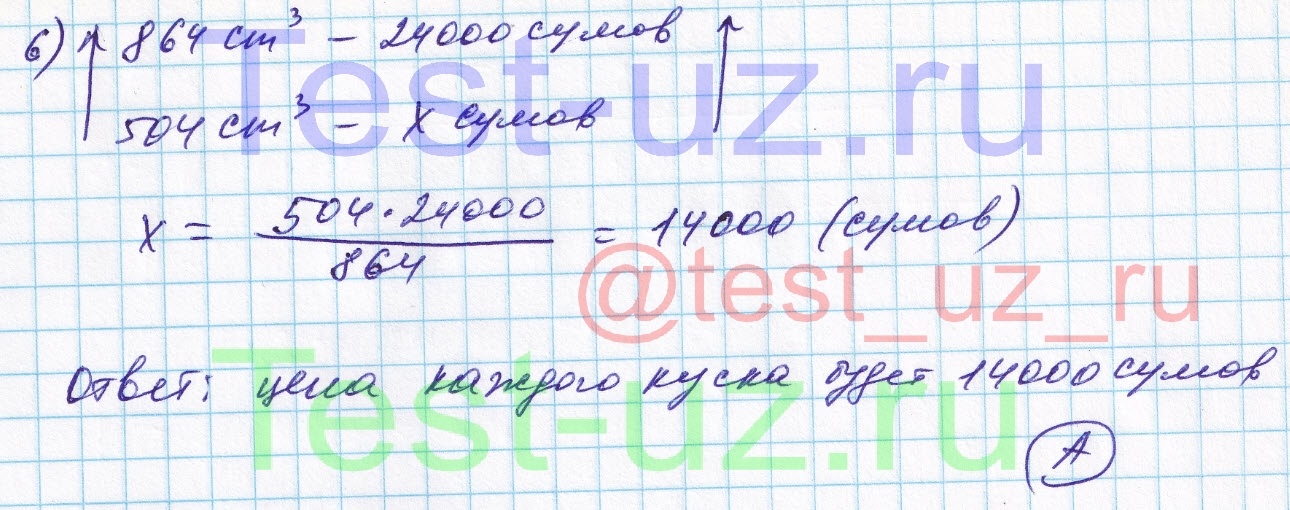 6) 864 cm³ – 24000 сумов
504 cm³ – x сумов
x = 504·24000 / 864 = 14000 (сумов)
Ответ: цена каждого куска будет 14000 сумов
A
Test-uz.ru
@test_uz_ru
Test-uz.ru